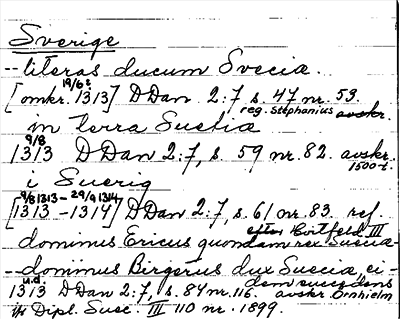 Sverige
-- literas ducum Svecia.
19/6 ?
[omkr. 1313] DDan 2:7 s. 47 nr. 53.
reg. Stephanius avskr.
in terra Suetia
9/8
1313 DDan 2:7, s. 59 nr. 82. avskr.
1500-t.
i Suerig
9/8 1313 - 29/9 1314
[1313 - 1314] DDan 2:7, s. 61 nr. 83. ref.
efter Hvitfeld III
dominus Ericus quondam rex Suecia-
-- dominus Birgerus dux Suecia, ei-
dem succedens
u.d.
1313 DDan 2:7, s. 84 nr. 116. avskr. Örnhielm
Dipl. Suec. III 110 nr. 1899.